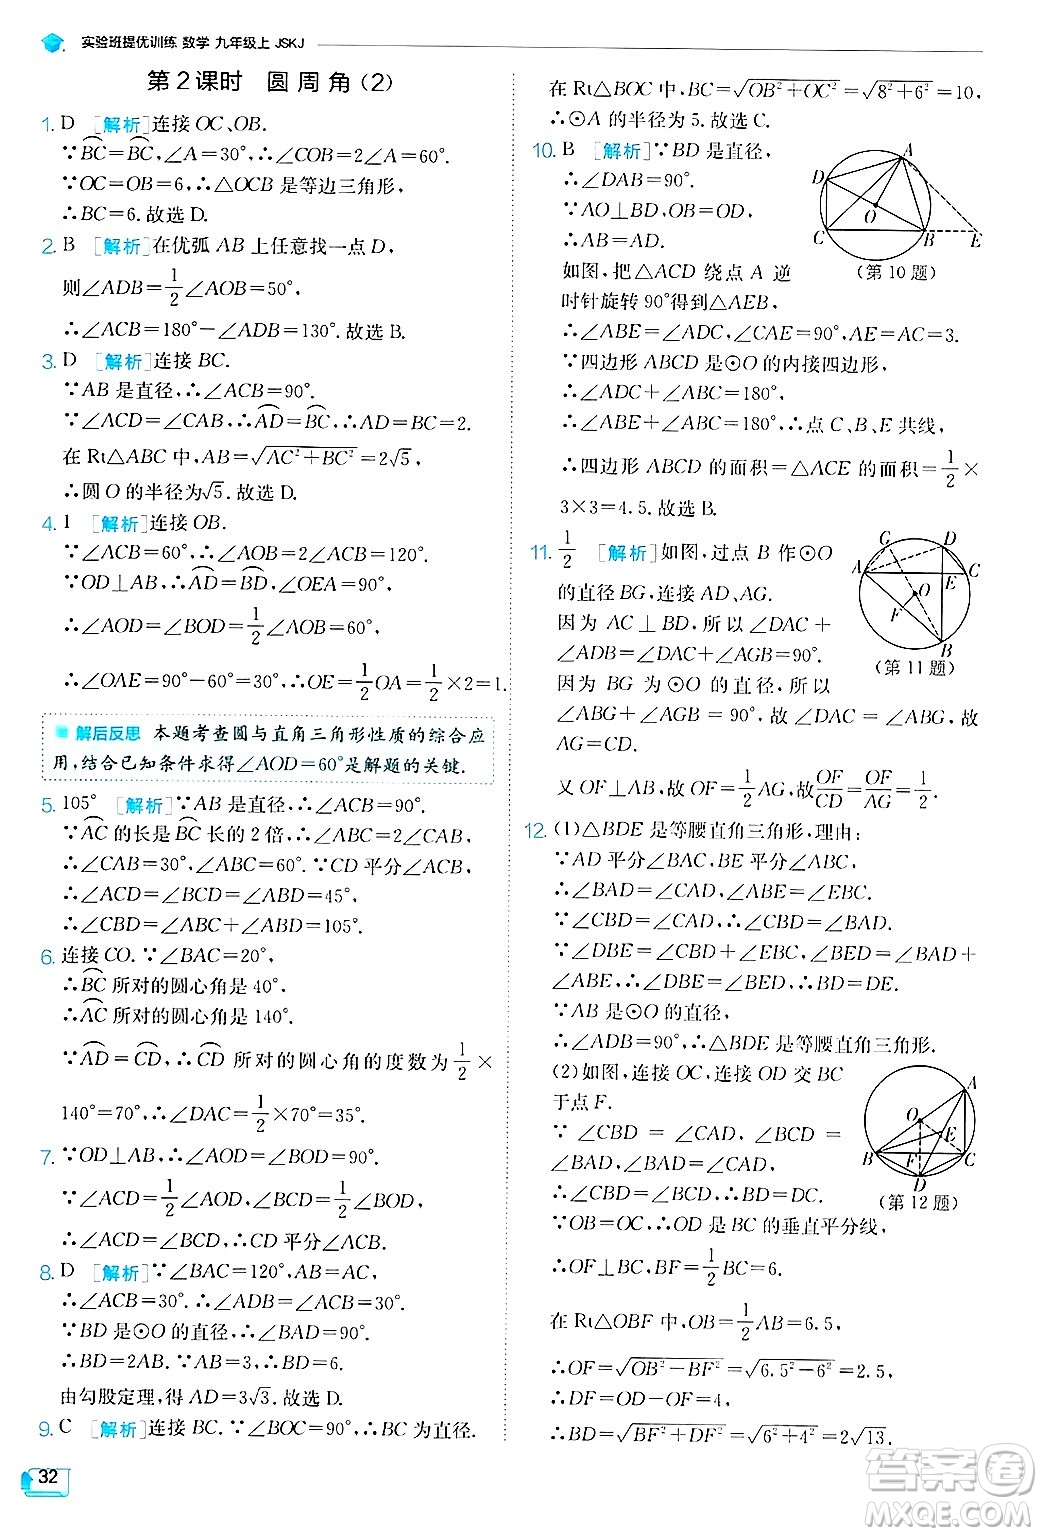 实验班提优训练 数学 九年级上 JSKJ
第2课时 圆周角(2)
1. D [解析]连接OC、OB.
∵BC⌒=BC⌒,∠A=30°,∴∠COB=2∠A=60°.
∵OC=OB=6,∴△OCB是等边三角形,
∴BC=6.故选D.
2. B [解析]在优弧AB上任意找一点D,
则∠ADB=1/2∠AOB=50°,
∴∠ACB=180°-∠ADB=130°.故选B.
3. D [解析]连接BC.
∵AB是直径,∴∠ACB=90°.
∵∠ACD=∠CAB,∴AD⌒=BC⌒,∴AD=BC=2.
在Rt△ABC中,AB=√(AC²+BC²)=2√5,
∴圆O的半径为√5.故选D.
4. 1 [解析]连接OB.
∵∠ACB=60°,∴∠AOB=2∠ACB=120°.
∵OD⊥AB,∴AD⌒=BD⌒,∠OEA=90°,
∴∠AOD=∠BOD=1/2∠AOB=60°,
∴∠OAE=90°-60°=30°,∴OE=1/2OA=1/2×2=1.
解后反思 本题考查圆与直角三角形性质的综合应
用,结合已知条件求得∠AOD=60°是解题的关键.
5. 105° [解析]∵AB是直径,∴∠ACB=90°.
∵AC⌒的长是BC⌒长的2倍,∴∠ABC=2∠CAB,
∴∠CAB=30°,∠ABC=60°.∵CD平分∠ACB,
∴∠ACD=∠BCD=∠ABD=45°,
∴∠CBD=∠ABC+∠ABD=105°.
6. 连接CO.∵∠BAC=20°,
∴BC⌒所对的圆心角是40°,
∴AC⌒所对的圆心角是140°.
∵AD⌒=CD⌒,∴CD⌒所对的圆心角的度数为1/2×
140°=70°,∴∠DAC=1/2×70°=35°.
7. ∵OD⊥AB,∴∠AOD=∠BOD=90°.
∵∠ACD=1/2∠AOD,∠BCD=1/2∠BOD,
∴∠ACD=∠BCD,∴CD平分∠ACB.
8. D [解析]∵∠BAC=120°,AB=AC,
∴∠ACB=30°.∴∠ADB=∠ACB=30°.
∵BD是⊙O的直径,∴∠BAD=90°.
∴BD=2AB.∵AB=3,∴BD=6.
由勾股定理,得AD=3√3.故选D.
9. C [解析]连接BC.∵∠BOC=90°,∴BC为直径.
在Rt△BOC中,BC=√(OB²+OC²)=√(8²+6²)=10,
∴⊙A的半径为5.故选C.
10. B [解析]∵BD是直径,
∴∠DAB=90°.
∵AO⊥BD,∴AD⌒=AB⌒,
∴AB=AD.
如图,把△ACD绕点A逆
时针旋转90°得到△AEB,
∴∠ABE=∠ADC,∠CAE=90°,AE=AC=3.
∵四边形ABCD是⊙O的内接四边形,
∴∠ADC+∠ABC=180°,
∴∠ABE+∠ABC=180°,∴点C、B、E共线,
∴四边形ABCD的面积=△ACE的面积=1/2×
3×3=4.5.故选B.
A D O C B E
(第10题)
11. 1/2 [解析]如图,过点B作⊙O
的直径BG,连接AD、AG.
因为AC⊥BD,所以∠DAC+
∠ADB=∠ABG+∠AGB=90°.
因为BG为⊙O的直径,所以
∠BAG=90°,故∠DAC=∠ABG,故AG=
CD.
又OF⊥AB,所以OF=1/2AG,故OF/CD=OF/AG=1/2.
G D A E C O F B
(第11题)
12. (1)△BDE是等腰直角三角形,理由:
∵AD平分∠BAC,BE平分∠ABC,
∴∠BAD=∠CAD,∠ABE=∠EBC.
∵∠CBD=∠CAD,∴∠CBD=∠BAD.
∵∠DBE=∠EBC+∠CBD,∠BED=∠BAD+
∠ABE,∴∠DBE=∠BED,∴BD=DE.
∵AB是⊙O的直径,
∴∠ADB=90°,∴△BDE是等腰直角三角形.
(2)如图,连接OC,连接OD交BC
于点F.
∵∠CBD=∠CAD,∠BCD=
∠BAD,∠CAD=∠BAD,
∴∠CBD=∠BCD,∴BD=DC.
∵OB=OC,∴OD是BC的垂直平分线,
∴OF⊥BC,BF=1/2BC=6.
在Rt△OBF中,OB=1/2AB=6.5,
∴OF=√(OB²-BF²)=√(6.5²-6²)=2.5,
∴DF=OD-OF=4,
∴BD=√(BF²+DF²)=√(6²+4²)=2√13.
A O E B F C D
(第12题)
32
答案圈
MXQE.COM